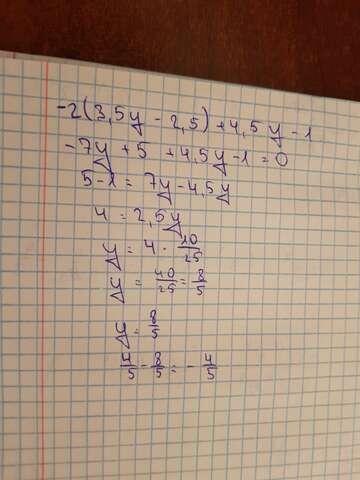 -2(3,5y - 2,5) + 4,5y - 1
-7y + 5 + 4,5y - 1 = 0
5 - 1 = 7y - 4,5y
4 = 2,5y
y = 4 · 10/25
y = 40/25 = 8/5
y = 8/5
4/5 - 8/5 = - 4/5